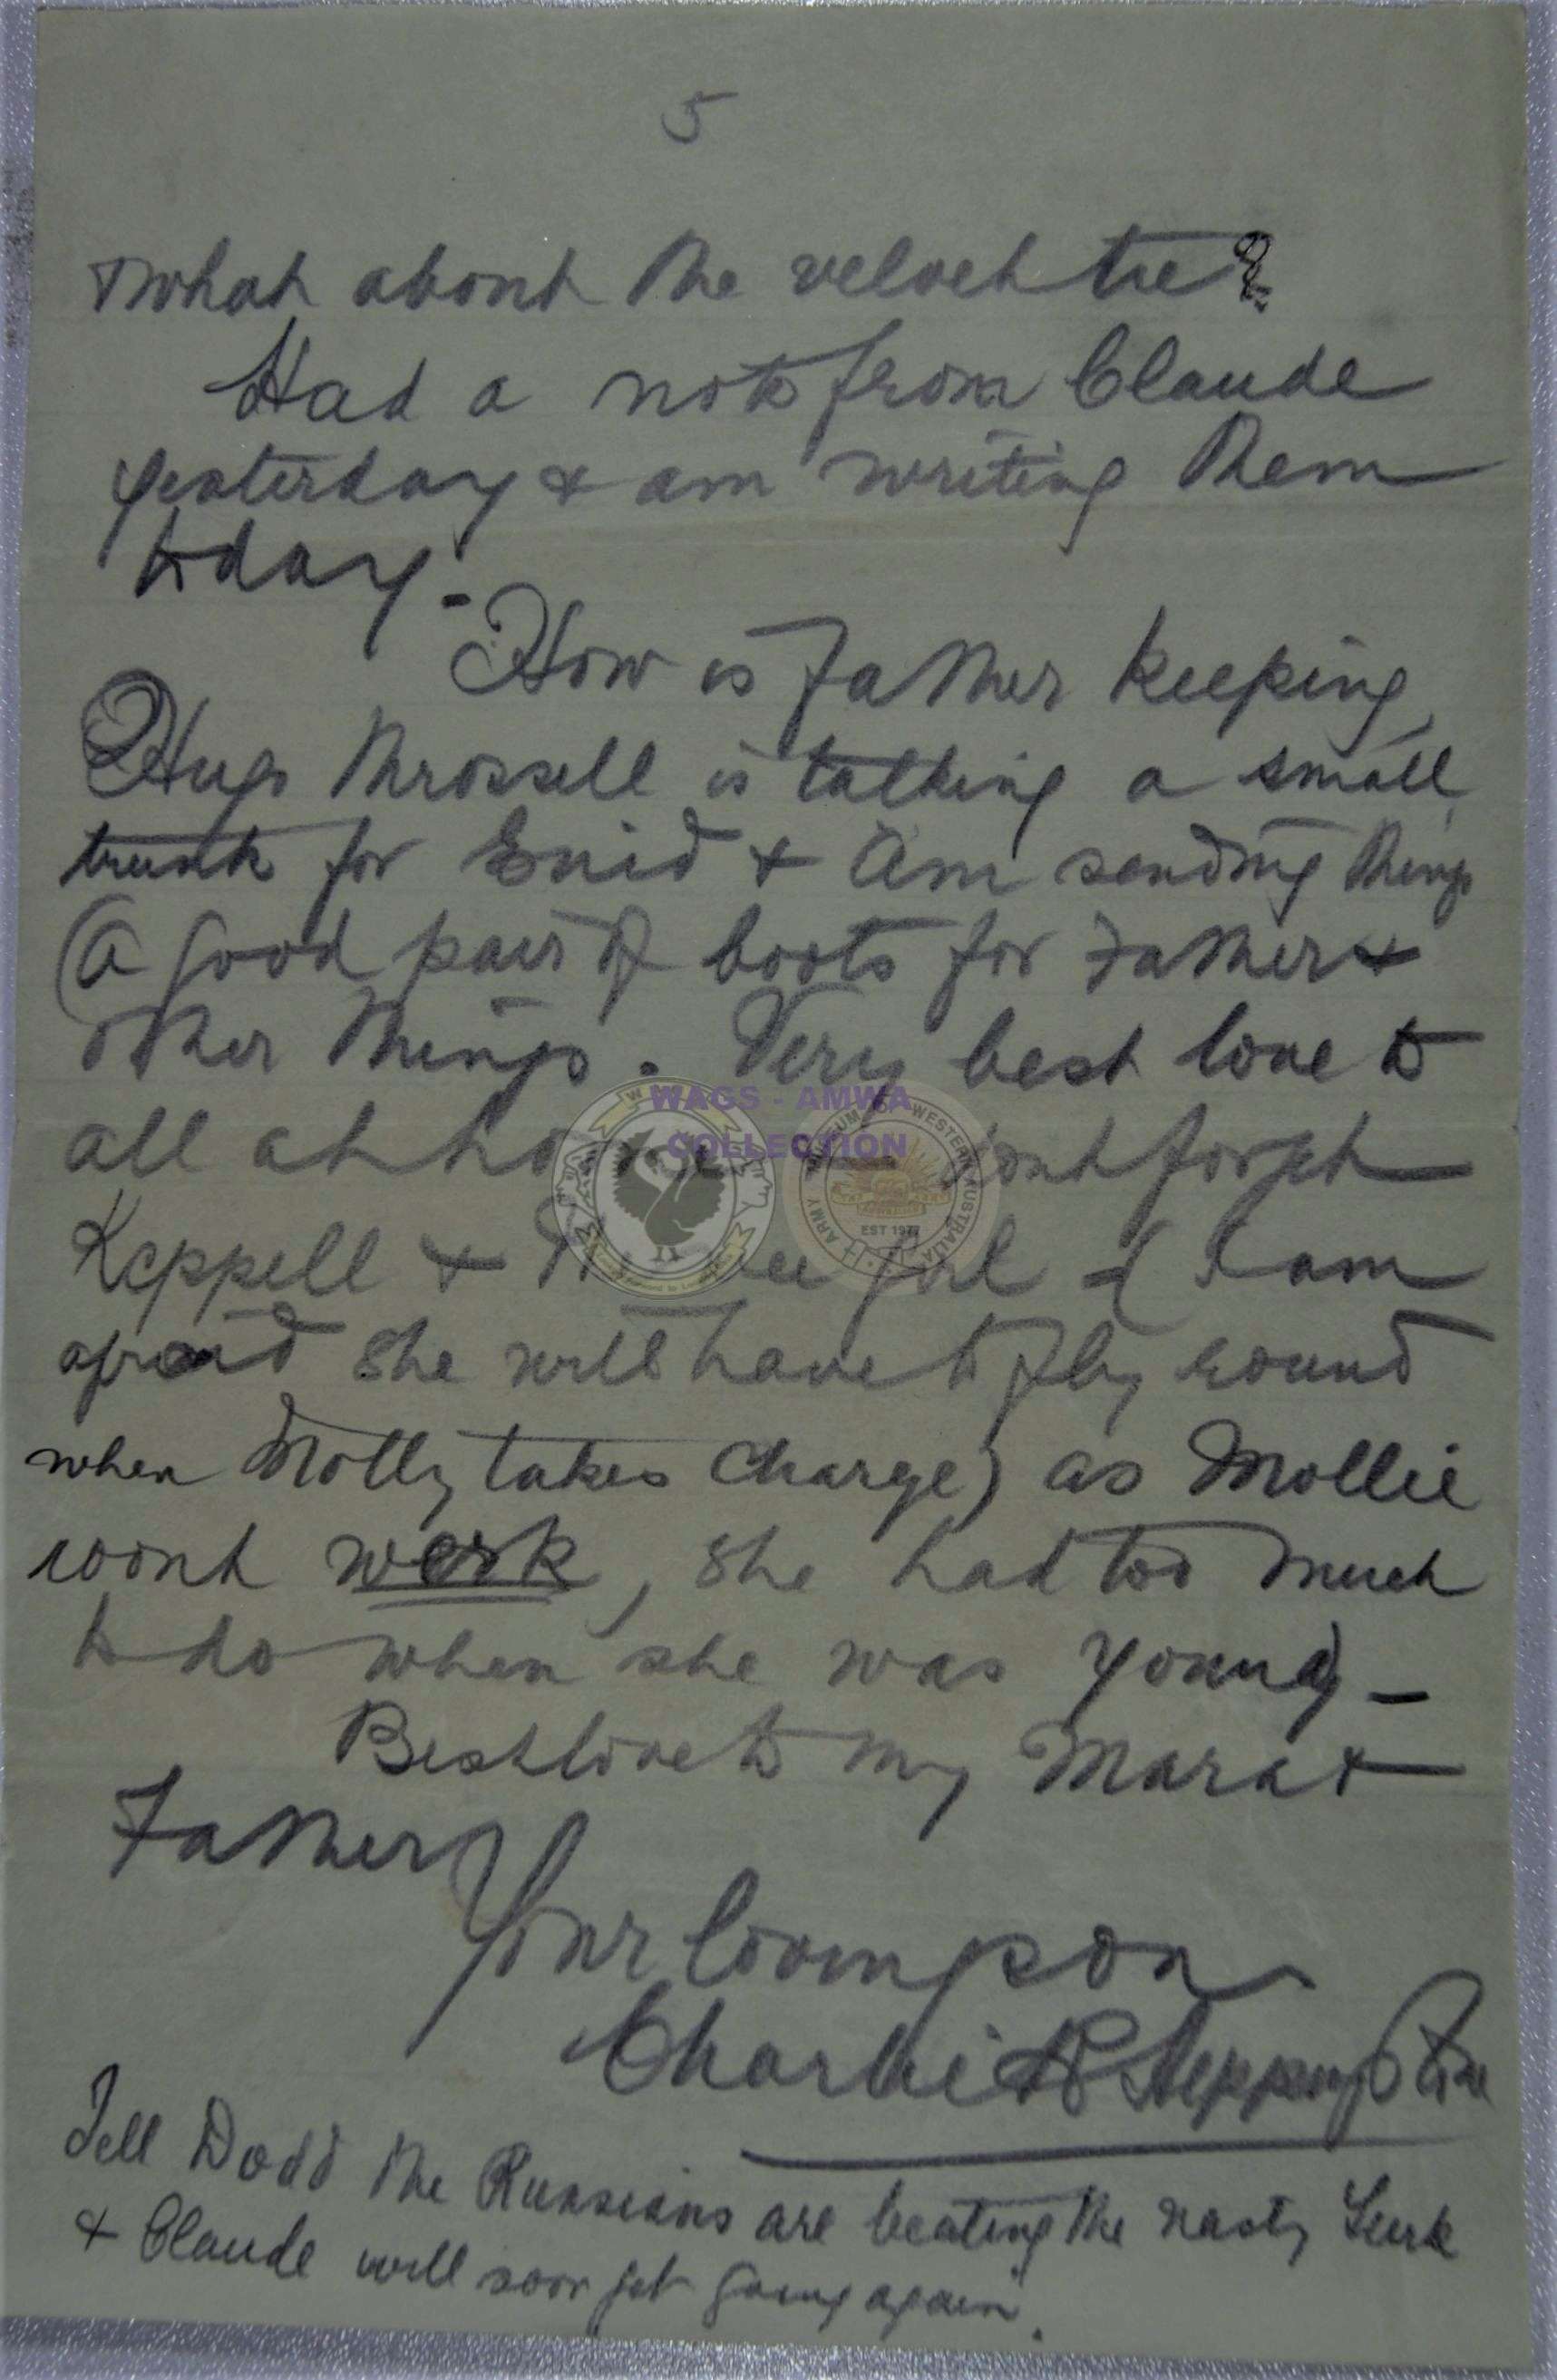 5
What about the velvet tie?
Had a note from Claude
yesterday & am writing them
today -
How is Father keeping
Hugo Throssell is talking a small
trunk for Enid & am sending things
(A good pair of boots for Father &
other things. Very best love to
all at home dont forget
Keppell & girl ( I am
afraid she will have to fly round
when Molly takes charge) as Mollie
wont work, she had too much
to do when she was young -
Best love to my Mara &
Father
Your loving son
Charlie
Tell Dodd the Russians are beating the nasty Turk
& Claude will soon get going again.
WAGS - AMWA
COLLECTION
ARMY MUSEUM OF WESTERN AUSTRALIA
EST 1977